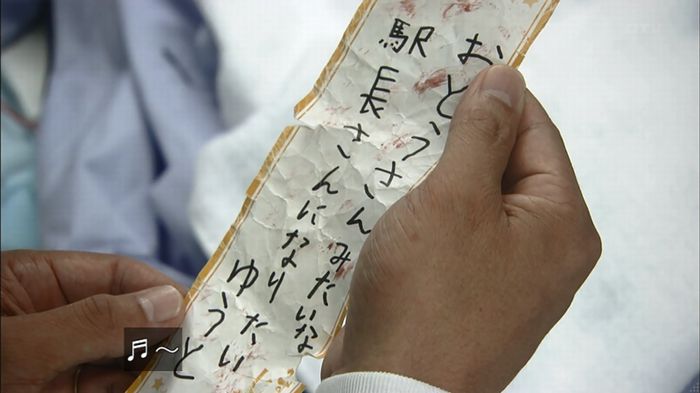 おとうさんみたいな
駅長さんになりたい
ゆうと
♬～